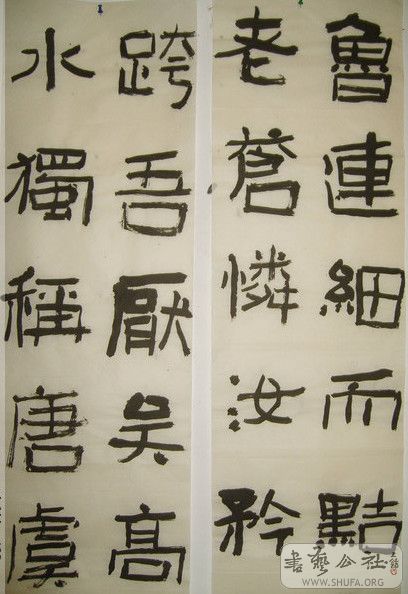 魯連細而黠
老蒼憐汝矜
跨吾厭矣高
水獨稱唐虞
書藝公社
WWW.SHUFA.ORG